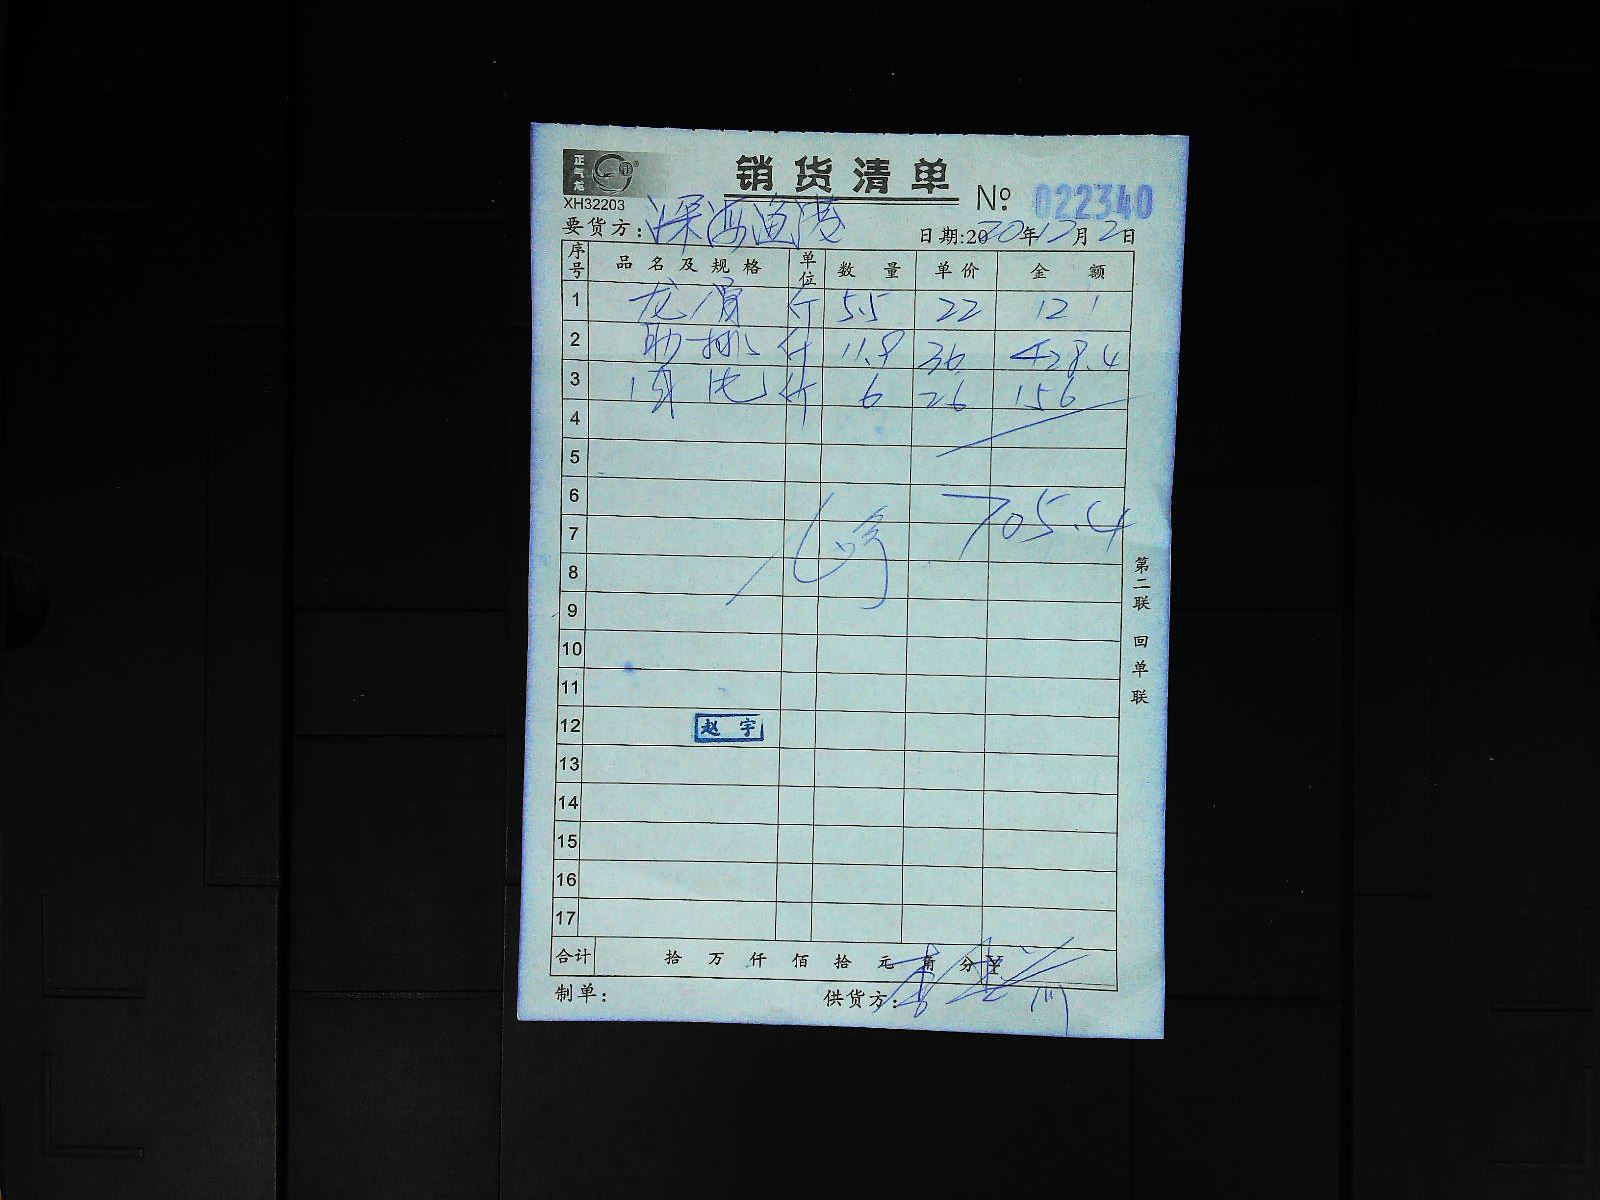 正气龙
销货清单
XH32203
№ 022340
要货方: 深海渔港 日期:2020年12月2日
序号 品名及规格 单位 数量 单价 金额
1 龙骨 斤 5.5 22 121
2 肋排 斤 11.9 36 428.4
3 斤 6 26 156
4
5
6 705.4
7
8
9
10
11
12 赵宇
13
14
15
16
17
合计 拾 万 仟 佰 拾 元 角 分 ¥
制单: 供货方:
第二联 回单联